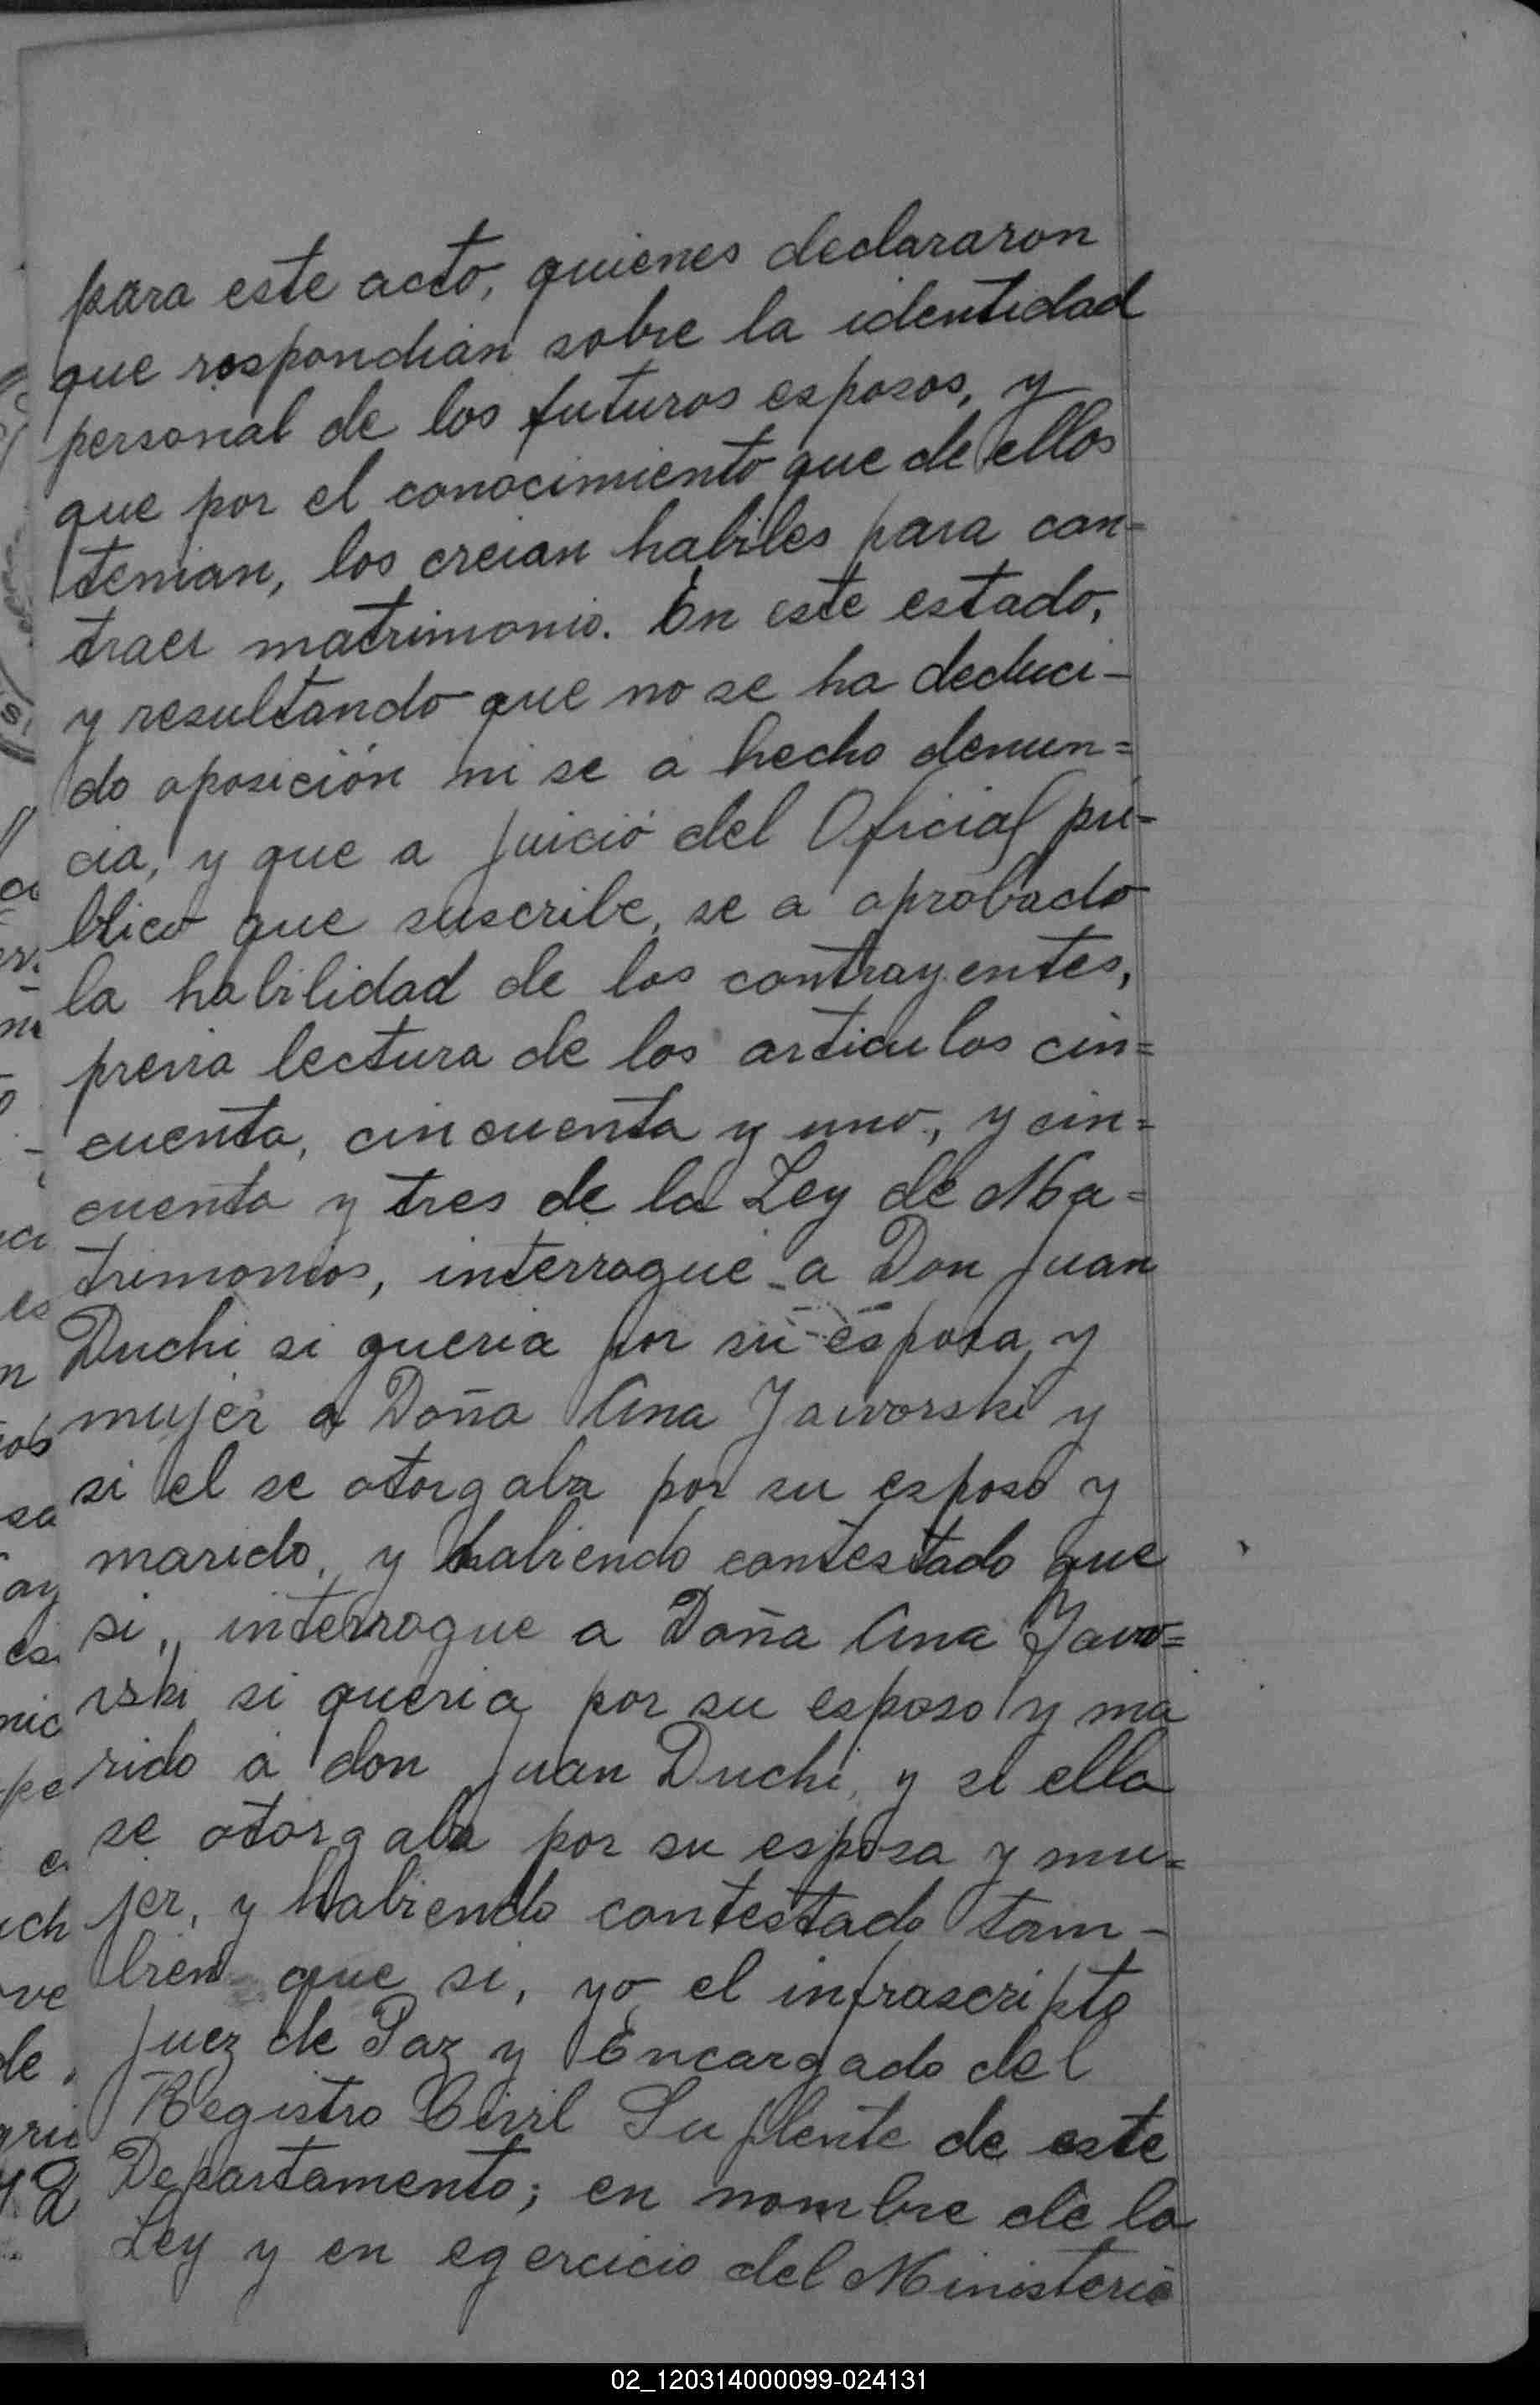 para este acto, quienes declararon
que respondian sobre la identidad
personal de los futuros esposos, y
que por el conocimiento que de ellos
tenian, los creian habiles para con-
traer matrimonio. En este estado,
y resultando que no se ha deduci-
do oposición ni se a hecho denun=
cia, y que a juició del Oficial pú-
blico que suscribe, se a aprobado
la habilidad de los contrayentes,
previa lectura de los articulos cin=
cuenta, cincuenta y uno, y cin=
cuenta y tres de la Ley de Ma=
trimonios, interrogué a Don Juan
Duchi si queria por su esposa y
mujer a Doña Ana Jaworski y
si el se otorgaba por su esposo y
marido, y habiendo contestado que
si, interrogue a Doña Ana Jawo=
rski si queria por su esposo y ma
rido a don Juan Duchi, y si ella
se otorgaba por su esposa y mu=
jer, y habiendo contestado tam-
bien que si, yo el infrascripto
Juez de Paz y Encargado del
Registro Civil Suplente de este
Departamento; en nombre de la
Ley y en egercicio del Ministerio
02_120314000099-024131